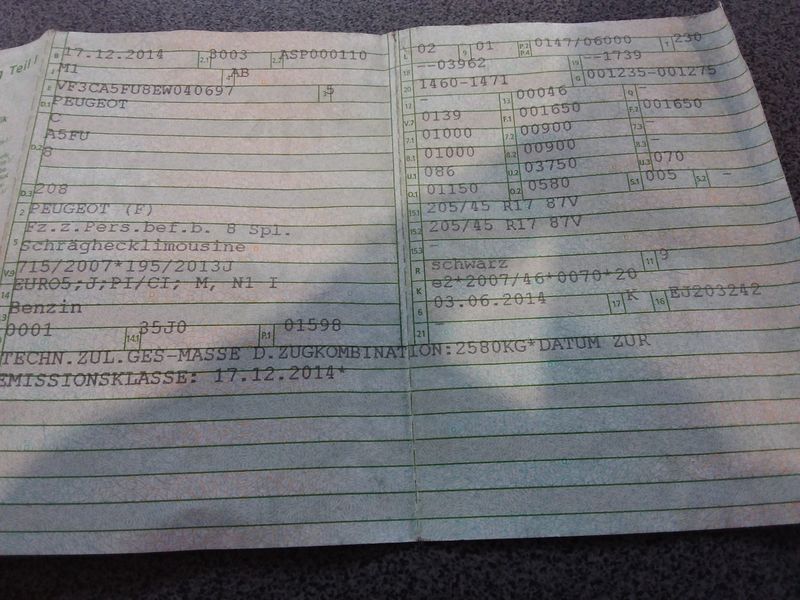 g Teil I
B 17.12.2014 2.1 3003 2.2 ASP000110
J M1 4 AB
E VF3CA5FU8EW040697 3 5
D.1 PEUGEOT
C
A5FU
D.2 8
D.3 208
2 PEUGEOT (F)
5 Fz.z.Pers.bef.b. 8 Spl.
Schräghecklimousine
V.9 715/2007*195/2013J
14 EURO5;J;PI/CI; M, N1 I
P.3 Benzin
0001 14.1 35J0 P.1 01598
L 02 9 01 P.2 P.4 0147/06000 T 230
18 --03962 19 --1739
20 1460-1471 G 001235-001275
12 - 13 00046 Q -
V.7 0139 F.1 001650 F.2 001650
7.1 01000 7.2 00900 7.3 -
8.1 01000 8.2 00900 8.3 -
U.1 086 U.2 03750 U.3 070
O.1 01150 O.2 0580 S.1 005 S.2 -
15.1 205/45 R17 87V
15.2 205/45 R17 87V
15.3 -
R schwarz 11 9
K e2*2007/46*0070*20
6 03.06.2014 17 K 16 EJ203242
21 -
TECHN.ZUL.GES-MASSE D.ZUGKOMBINATION:2580KG*DATUM ZUR
EMISSIONSKLASSE: 17.12.2014*